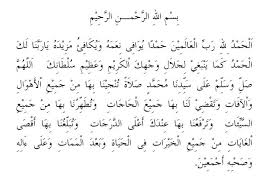 بِسْمِ اللهِ الرَّحْمـٰـنِ الرَّحِيْمِ
اَلْحَمْدُ للهِ رَبِّ الْعَالَمِيْنَ حَمْدًا يُوَافِي نِعَمَهُ وَيُكَافِئُ مَزِيْدَهُ يَارَبَّنَا لَكَ
الْحَمْدُ كَمَا يَنْبَغِيْ لِجَلَالِ وَجْهِكَ الْكَرِيْمِ وَعَظِيْمِ سُلْطَانِكَ اَللّٰهُمَّ
صَلِّ وَسَلِّمْ عَلَى سَيِّدِنَا مُحَمَّدٍ صَلَاةً تُنْجِيْنَا بِهَا مِنْ جَمِيْعِ الْأَهْوَالِ
وَالْآفَاتِ وَتَقْضِيْ لَنَا بِهَا جَمِيْعَ الْحَاجَاتِ وَتُطَهِّرُنَا بِهَا مِنْ جَمِيْعِ
السَّيِّئَاتِ وَتَرْفَعُنَا بِهَا عِنْدَكَ أَعْلَى الدَّرَجَاتِ وَتُبَلِّغُنَا بِهَا أَقْصَى
الْغَايَاتِ مِنْ جَمِيْعِ الْخَيْرَاتِ فِي الْحَيَاةِ وَبَعْدَ الْمَمَاتِ وَعَلَى ءَالِهِ
وَصَحْبِهِ أَجْمَعِيْنَ.